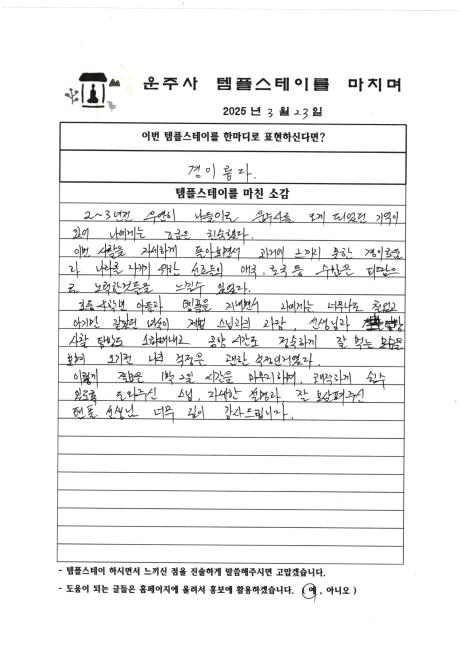 운주사 템플스테이를 마치며
2025 년 3 월 23 일
이번 템플스테이를 한마디로 표현하신다면?
경이롭다.
템플스테이를 마친 소감
2~3년전 우연히 나들이로 운주사를 오게 되었던 기억이
있어 나에게는 조금은 친숙했다.
이번 사찰을 자세하게 돌아보면서 과거에 느끼지 못한 경이로움
과 나라를 지키기 위한 선조들의 애국, 호국 등 수많은 마음으
로 노력한것들을 느낄수 있었다.
초등 4학년 아들과 템플을 지내면서 그에게는 너무나도 즐겁고
아기인 줄알던 녀석이 제법 스님과의 차담, 선생님과
사찰 탐방도 소화해내고 공양 시간도 정숙하게 잘 먹는 모습을
보며 오기전 나의 걱정은 괜한 걱정인거였다.
이렇게 짧은 1박 2일 시간을 마무리하며, 쾌적하게 쉴수
있도록 도와주신 스님, 자세한 설명과 잘 보살펴주신
템플 선생님 너무 깊이 감사드립니다.
- 템플스테이 하시면서 느끼신 점을 진솔하게 말씀해주시면 고맙겠습니다.
- 도움이 되는 글들은 홈페이지에 올려서 홍보에 활용하겠습니다. ( 예 , 아니오 )